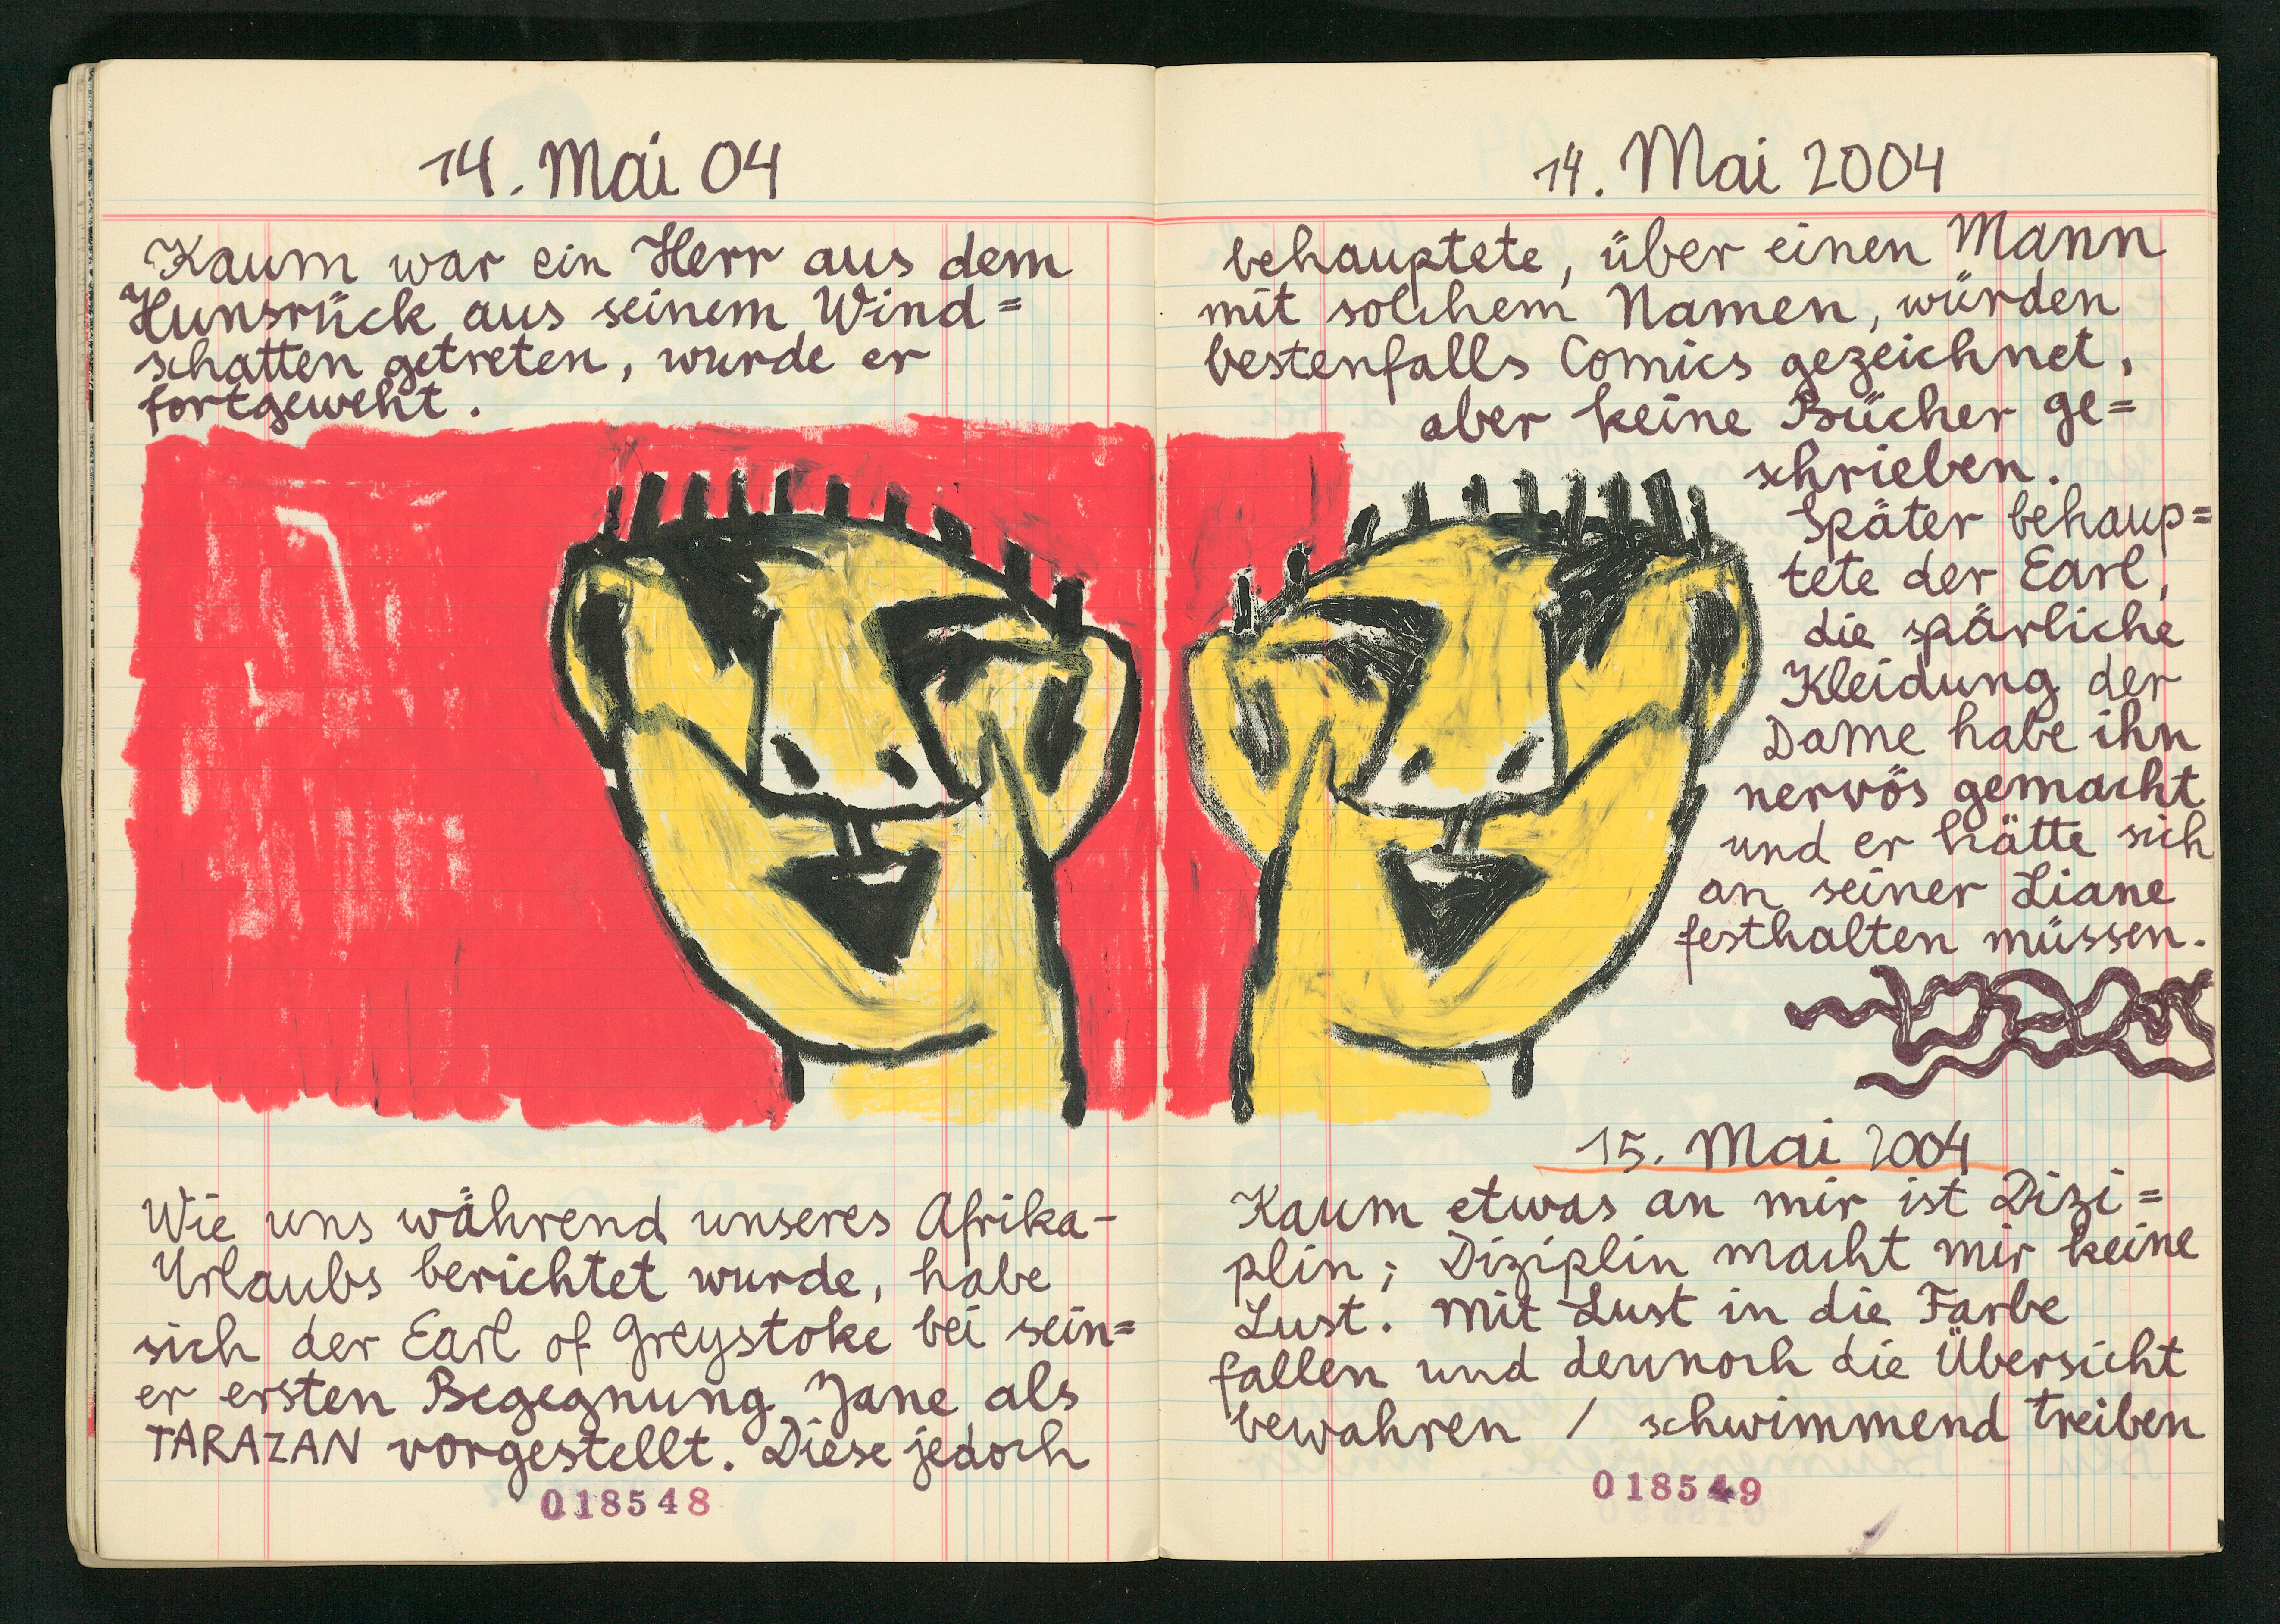 14. Mai 04
Kaum war ein Herr aus dem
Hunsrück aus seinem Wind=
schatten getreten, wurde er
fortgeweht.
Wie uns während unseres Afrika-
Urlaubs berichtet wurde, habe
sich der Earl of Greystoke bei sein=
er ersten Begegnung Jane als
TARAZAN vorgestellt. Diese jedoch
018548
14. Mai 2004
behauptete, über einen Mann
mit solchem Namen, würden
bestenfalls Comics gezeichnet,
aber keine Bücher ge=
schrieben.
Später behaup=
tete der Earl,
die spärliche
Kleidung der
Dame habe ihn
nervös gemacht
und er hätte sich
an seiner Liane
festhalten müssen.
15. Mai 2004
Kaum etwas an mir ist Dizi=
plin; Diziplin macht mir keine
Lust. Mit Lust in die Farbe
fallen und dennoch die Übersicht
bewahren / schwimmend treiben
018549